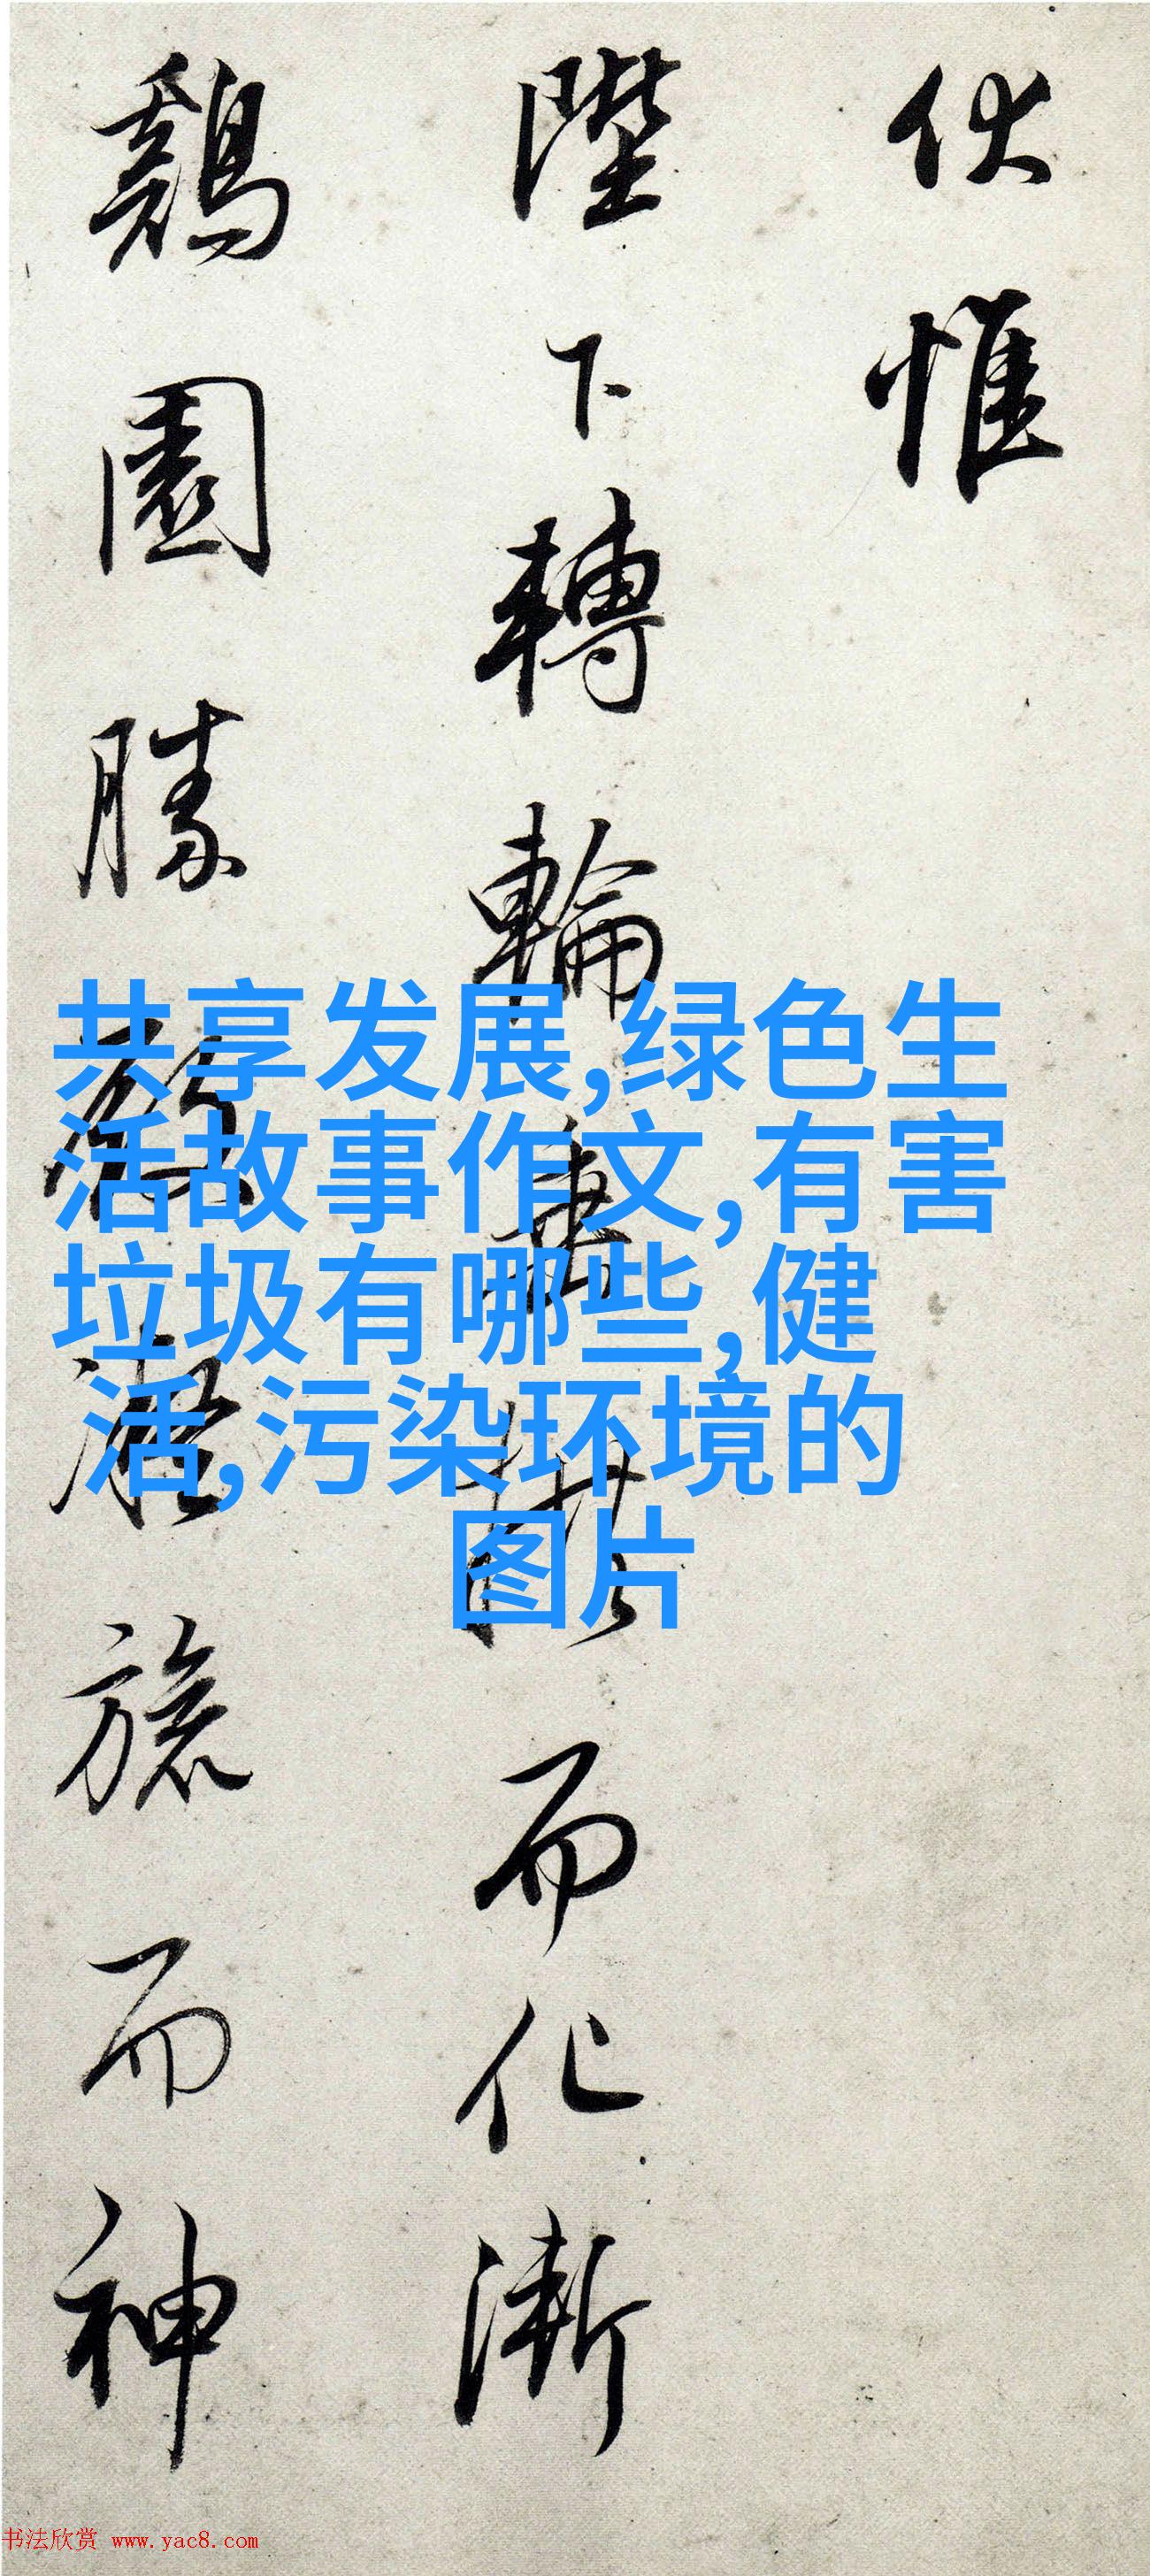 伏惟
陛下轉輪垂拱而化漸
鷄園勝殿凝旒而神
共享发展,绿色生
活故事作文,有害
垃圾有哪些,健
活,污染环境的
图片
书法欣赏 www.yac8.com